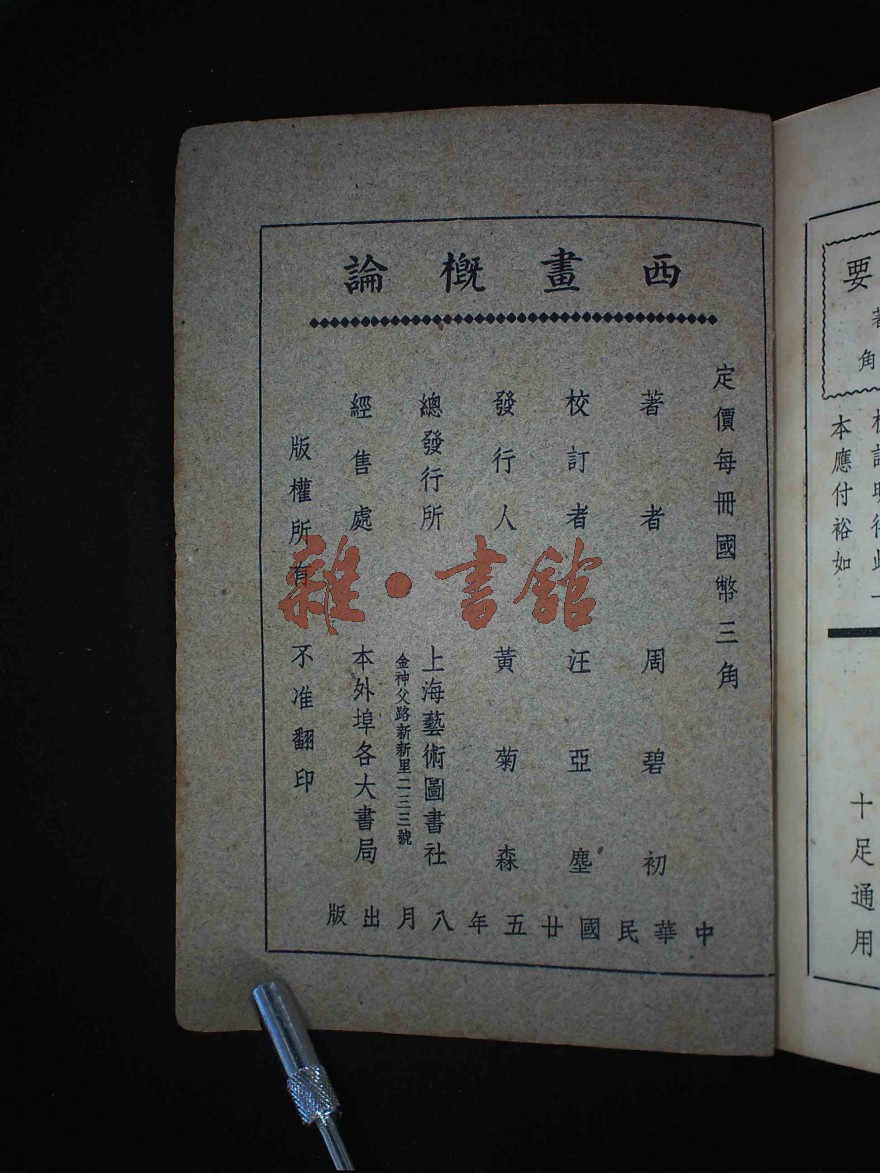 西畫概論
定價每冊國幣三角
著者 周碧初
校訂者 汪亞塵
發行人 黃菊森
總發行所 上海藝術圖書社
金神父路新新里二三三號
經售處 本外埠各大書局
版權所有 不准翻印
中華民國廿五年八月出版
雜·書館
要
著
角
本應付裕如
十足通用